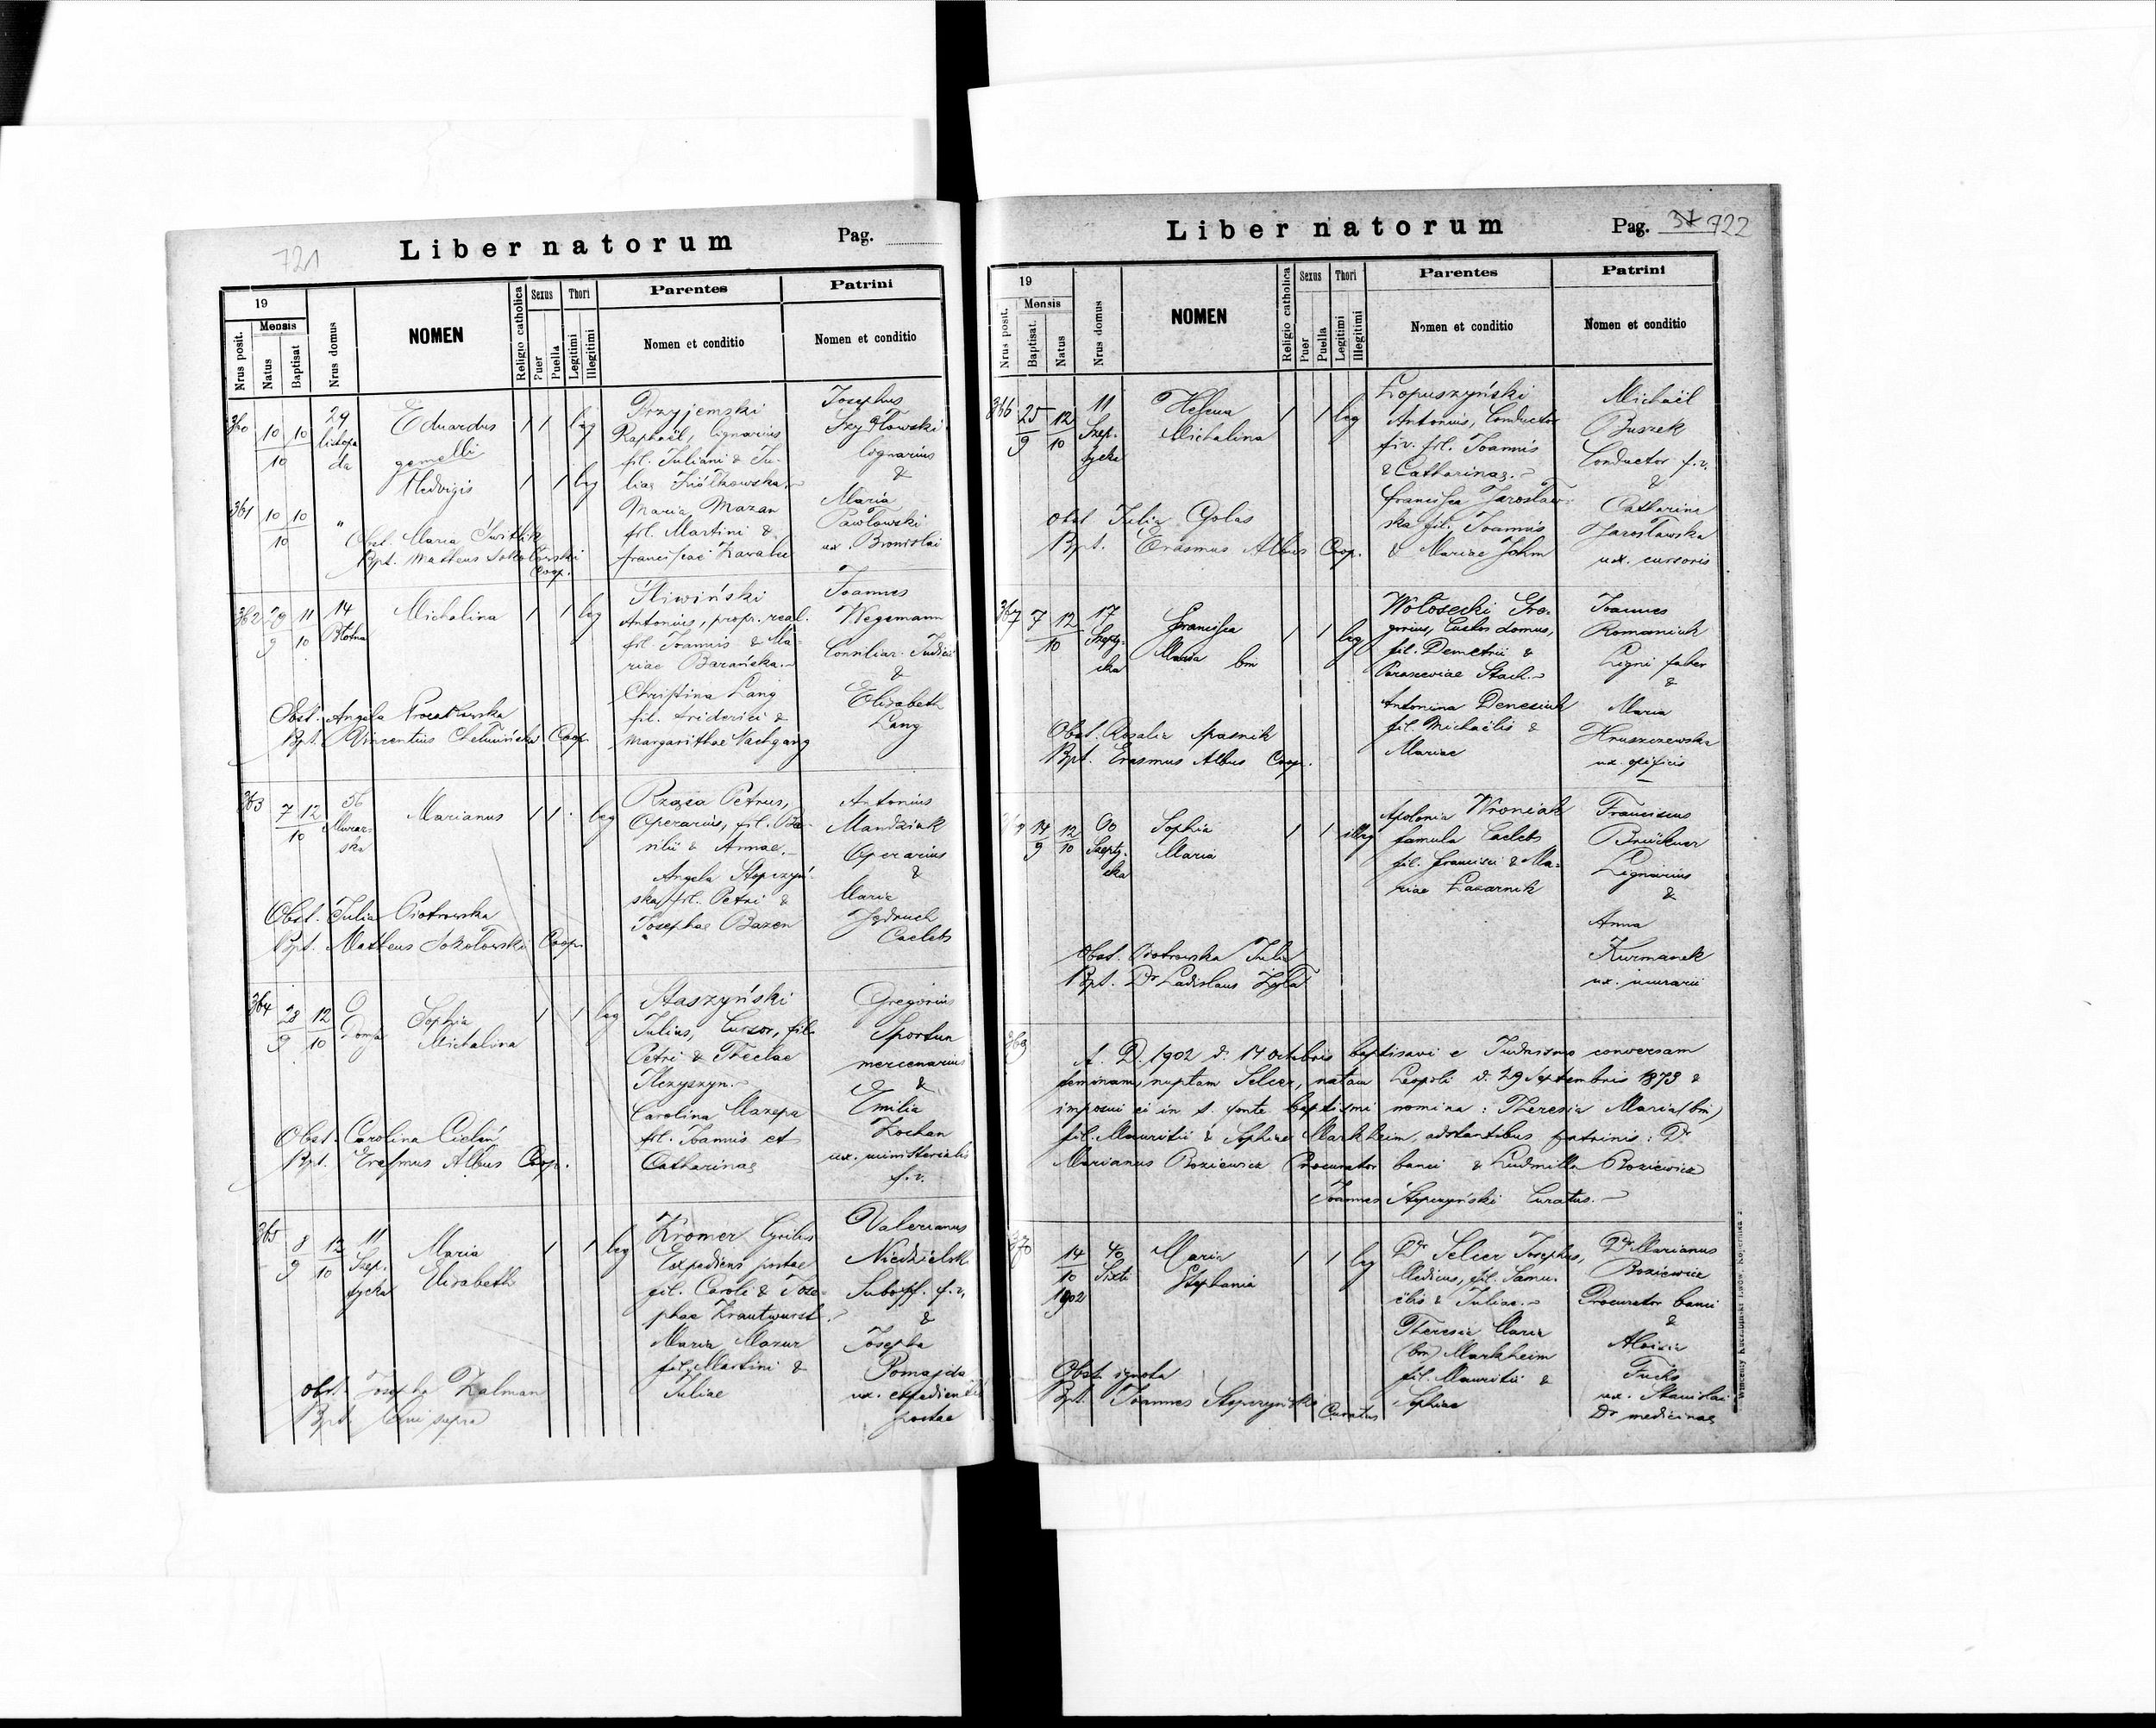 721
Liber natorum
Pag.
19
Mensis
Nrus posit.
Natus
Baptisat
Nrus domus
NOMEN
Religio catholica
Sexus
Puer
Puella
Thori
Legitimi
Illegitimi
Parentes
Nomen et conditio
Patrini
Nomen et conditio
360 10 10 29 Eduardus 1 1 leg
10 listopa
da gemelli
Hedvigis 1 1 leg
361 10 10 "
10
Obst. Maria
Bpt. Matheus Coop.
Przyjemski
Raphaël, lignarius
fil. Juliani & Ju-
liae Ziółkowska.
Maria Mazan
fil. Martini &
Franciscae
Josephus
Szydłowski
lignarius
&
Maria
Pawłowski
ux. Bronislai
362 29 11 14 Michalina 1 1 leg
9 10 Błotna
Obst. Angela
Bpt. Vincentius Coop.
Śliwiński
Antonius, propr. real.
fil. Joannis & Ma-
riae Barańska.
Christina Lang
fil. Friderici &
Margarithae Nachgang
Joannes
Wegemann
Consiliar. Judicii
&
Elisabeth
Lang
363 7 12 56 Marianus 1 1 leg
10 Murar-
ska
Obst. Julia Piotrowska
Bpt. Matheus Sokołowski Coop.
Rząsa Petrus,
Operarius, fil. Ba-
silii & Annae.
Angela Stopczyń-
ska fil. Petri &
Josephae Bazen
Antonius
Mandziak
Operarius
&
Maria
Jędruch
Caelebs
364 28 12 9 Sophia 1 1 leg
9 10 Michalina
Obst. Carolina
Bpt. Erasmus Albus Coop.
Staszyński
Julius, Cursor, fil.
Petri & Theclae
Carolina Mazepa
fil. Joannis et
Catharinae
Gregorius
Sportun
mercenarius
&
Emilia
Kochan
ux. ministerialis
f. v.
365 8 12 11 Maria 1 1 leg
9 10 Szep- Elisabeth
tycka
Obst. Josepha Kalman
Bpt. Qui supra
Kromer Cyrillus
Expediens postae
fil. Caroli & Jose-
phae Krautwurst.
Maria Mazur
fil. Martini &
Juliae
Valerianus
Niedzielski
Suboff. f. v.
&
Josepha
Pomajda
ux. expedientis
postae
Liber natorum
Pag. 37 722
19
Mensis
Nrus posit.
Baptisat.
Natus
Nrus domus
NOMEN
Religio catholica
Sexus
Puer
Puella
Thori
Legitimi
Illegitimi
Parentes
Nomen et conditio
Patrini
Nomen et conditio
366 25 12 11 Helena 1 1 leg
9 10 Szep- Michalina
tycka
Obst. Julia Golas
Bpt. Erasmus Albus Coop.
Łopuszyński
Antonius, Conductor
f. v. fil. Joannis
& Catharinae.
Francisca Jarosław-
ska fil. Joannis
& Mariae Johm
Michaël
Buszek
Conductor f. v.
&
Catharina
Jarosławska
ux. cursoris
367 7 12 17 Francisca 1 1 leg
10 Szepty- Maria bm
cka
Obst. Rosalia Spasnik
Bpt. Erasmus Albus Coop.
Wołosecki Gre-
gorius, Custos domus,
fil. Demetrii &
Parasceviae Stach.
Antonina Denesiuk
fil. Michaëlis &
Mariae
Joannes
Romaniuk
Ligni faber
&
Maria
Hruszczewska
ux. opificis
14 12 60 Sophia 1 1 illeg
9 10 Szepty- Maria
cka
Obst. Piotrowska Julia
Bpt. Dr Ladislaus Żyła
Apolonia Wroniak
famula Caelebs
fil. Francisci & Ma-
riae Łazarnik
Franciscus
Brückner
Lignarius
&
Anna
Kurmanek
ux. murarii
369 A. D. 1902 d. 14 octobris baptisavi e Judaismo conversam
feminam, nuptam Selzer, natam Leopoli d. 29 Septembris 1873 &
imposui ei in s. fonte baptismi nomina: Theresia Maria (bm)
fil. Mauritii & Sophiae Markheim, adstantibus patrinis: Dr
Marianus Boziewicz Procurator banci & Ludmilla Boziewicz
Joannes Stopczyński Curatus.
370 14 40 Maria 1 1 leg
10 Sixti Stephania
1902
Obst. ignota
Bpt. Joannes Stopczyński Curatus
Dr Selzer Josephus,
Medicus, fil. Samu-
ëlis & Juliae.
Theresia Maria
(bm) Markheim
fil. Mauritii &
Sophiae
Dr Marianus
Boziewicz
Procurator banci
&
Aloisia
Fuchs
ux. Stanislai
Dr medicinae